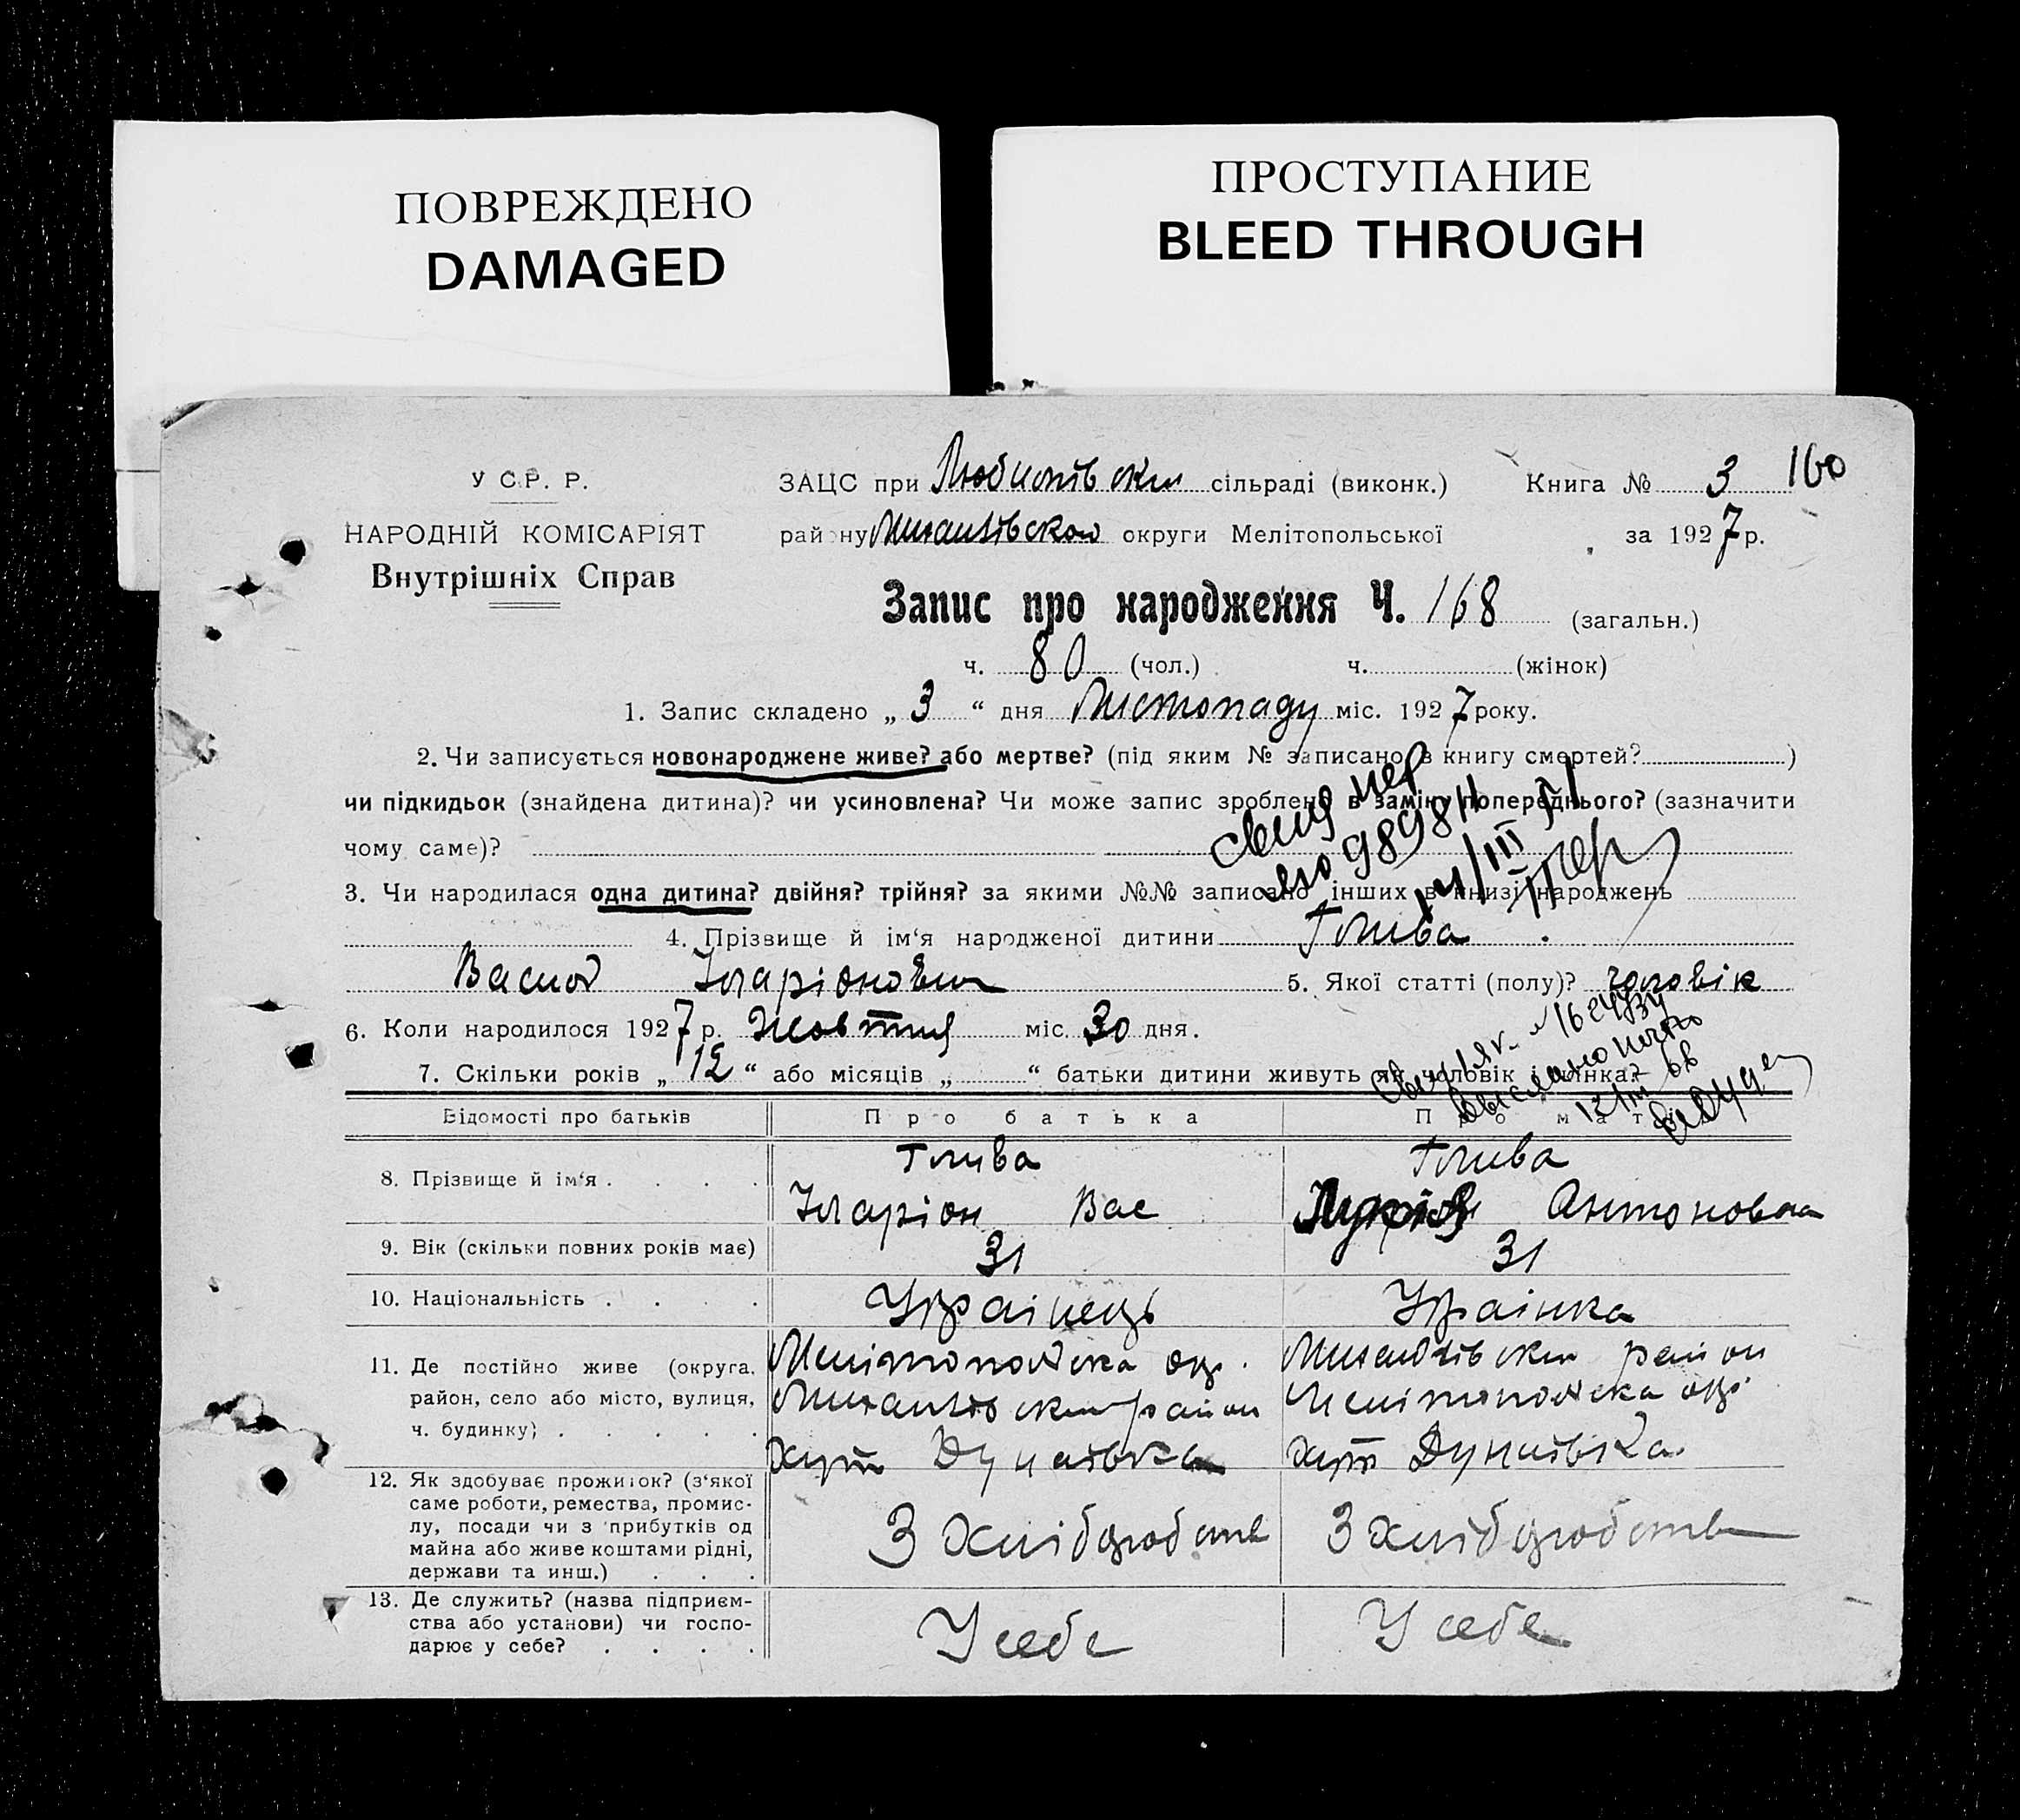 ПОВРЕЖДЕНО
DAMAGED
ПРОСТУПАНИЕ
BLEED THROUGH
У С.Р. Р.
НАРОДНІЙ КОМІСАРІЯТ
Внутрішніх Справ
ЗАЦС при сільраді (виконк.) Книга № 3 160
району округи Мелітопольської за 1927 р.
Запис про народження Ч. 168 (загальн.)
ч. 80 (чол.) ч. (жінок)
1. Запис складено „ 3 “ дня Листопаду міс. 1927 року.
2. Чи записується новонароджене живе? або мертве? (під яким № записано в книгу смертей? )
чи підкидьок (знайдена дитина)? чи усиновлена? Чи може запис зроблено в заміну попереднього? (зазначити
чому саме)?
3. Чи народилася одна дитина? двійня? трійня? за якими №№ записано інших в книзі народжень
4. Прізвище й ім‘я народженої дитини Глива
Васил Іларіонович 5. Якої статті (полу)? чоловік
6. Коли народилося 1927 р. Жовтня міс. 30 дня.
7. Скільки років „ 12 “ або місяців „ “ батьки дитини живуть як чоловік і жінка?
Відомості про батьків Про батька Про матір
8. Прізвище й ім‘я . . . . Глива Глива
Іларіон Вас Антоновна
9. Вік (скільки повних років має) 31 31
10. Національність . . . . Українець Українка
11. Де постійно живе (округа,
район, село або місто, вулиця,
ч. будинку) . . . . .
Мелітопольска окр.
район
хут Дунаівка
район
Мелітопольска окр.
хут Дунаівка
12. Як здобуває прожиток? (з‘якої
саме роботи, ремества, промис-
лу, посади чи з прибутків од
майна або живе коштами рідні,
держави та инш.) . . .
З хліборобств З хліборобств
13. Де служить? (назва підприєм-
ства або установи) чи госпо-
дарює у себе? . . . .
У себе У себе